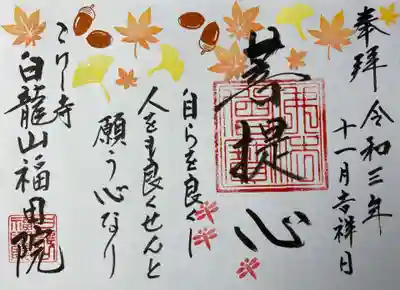 奉拝 令和三年
十一月吉祥日
菩提心
自らを良くし
人をも良くせんと
願う心なり
こけし寺
白龍山福田院